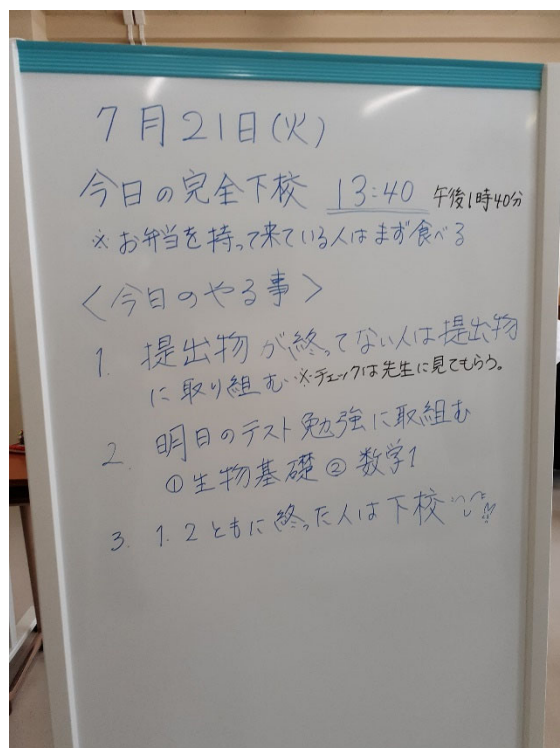 7月21日(火)
今日の完全下校 13:40 午後1時40分
※お弁当を持って来ている人はまず食べる
<今日のやる事>
1. 提出物が終ってない人は提出物
に取り組む ※チェックは先生に見てもらう。
2 明日のテスト勉強に取組む
①生物基礎 ② 数学1
3. 1.2ともに終った人は下校